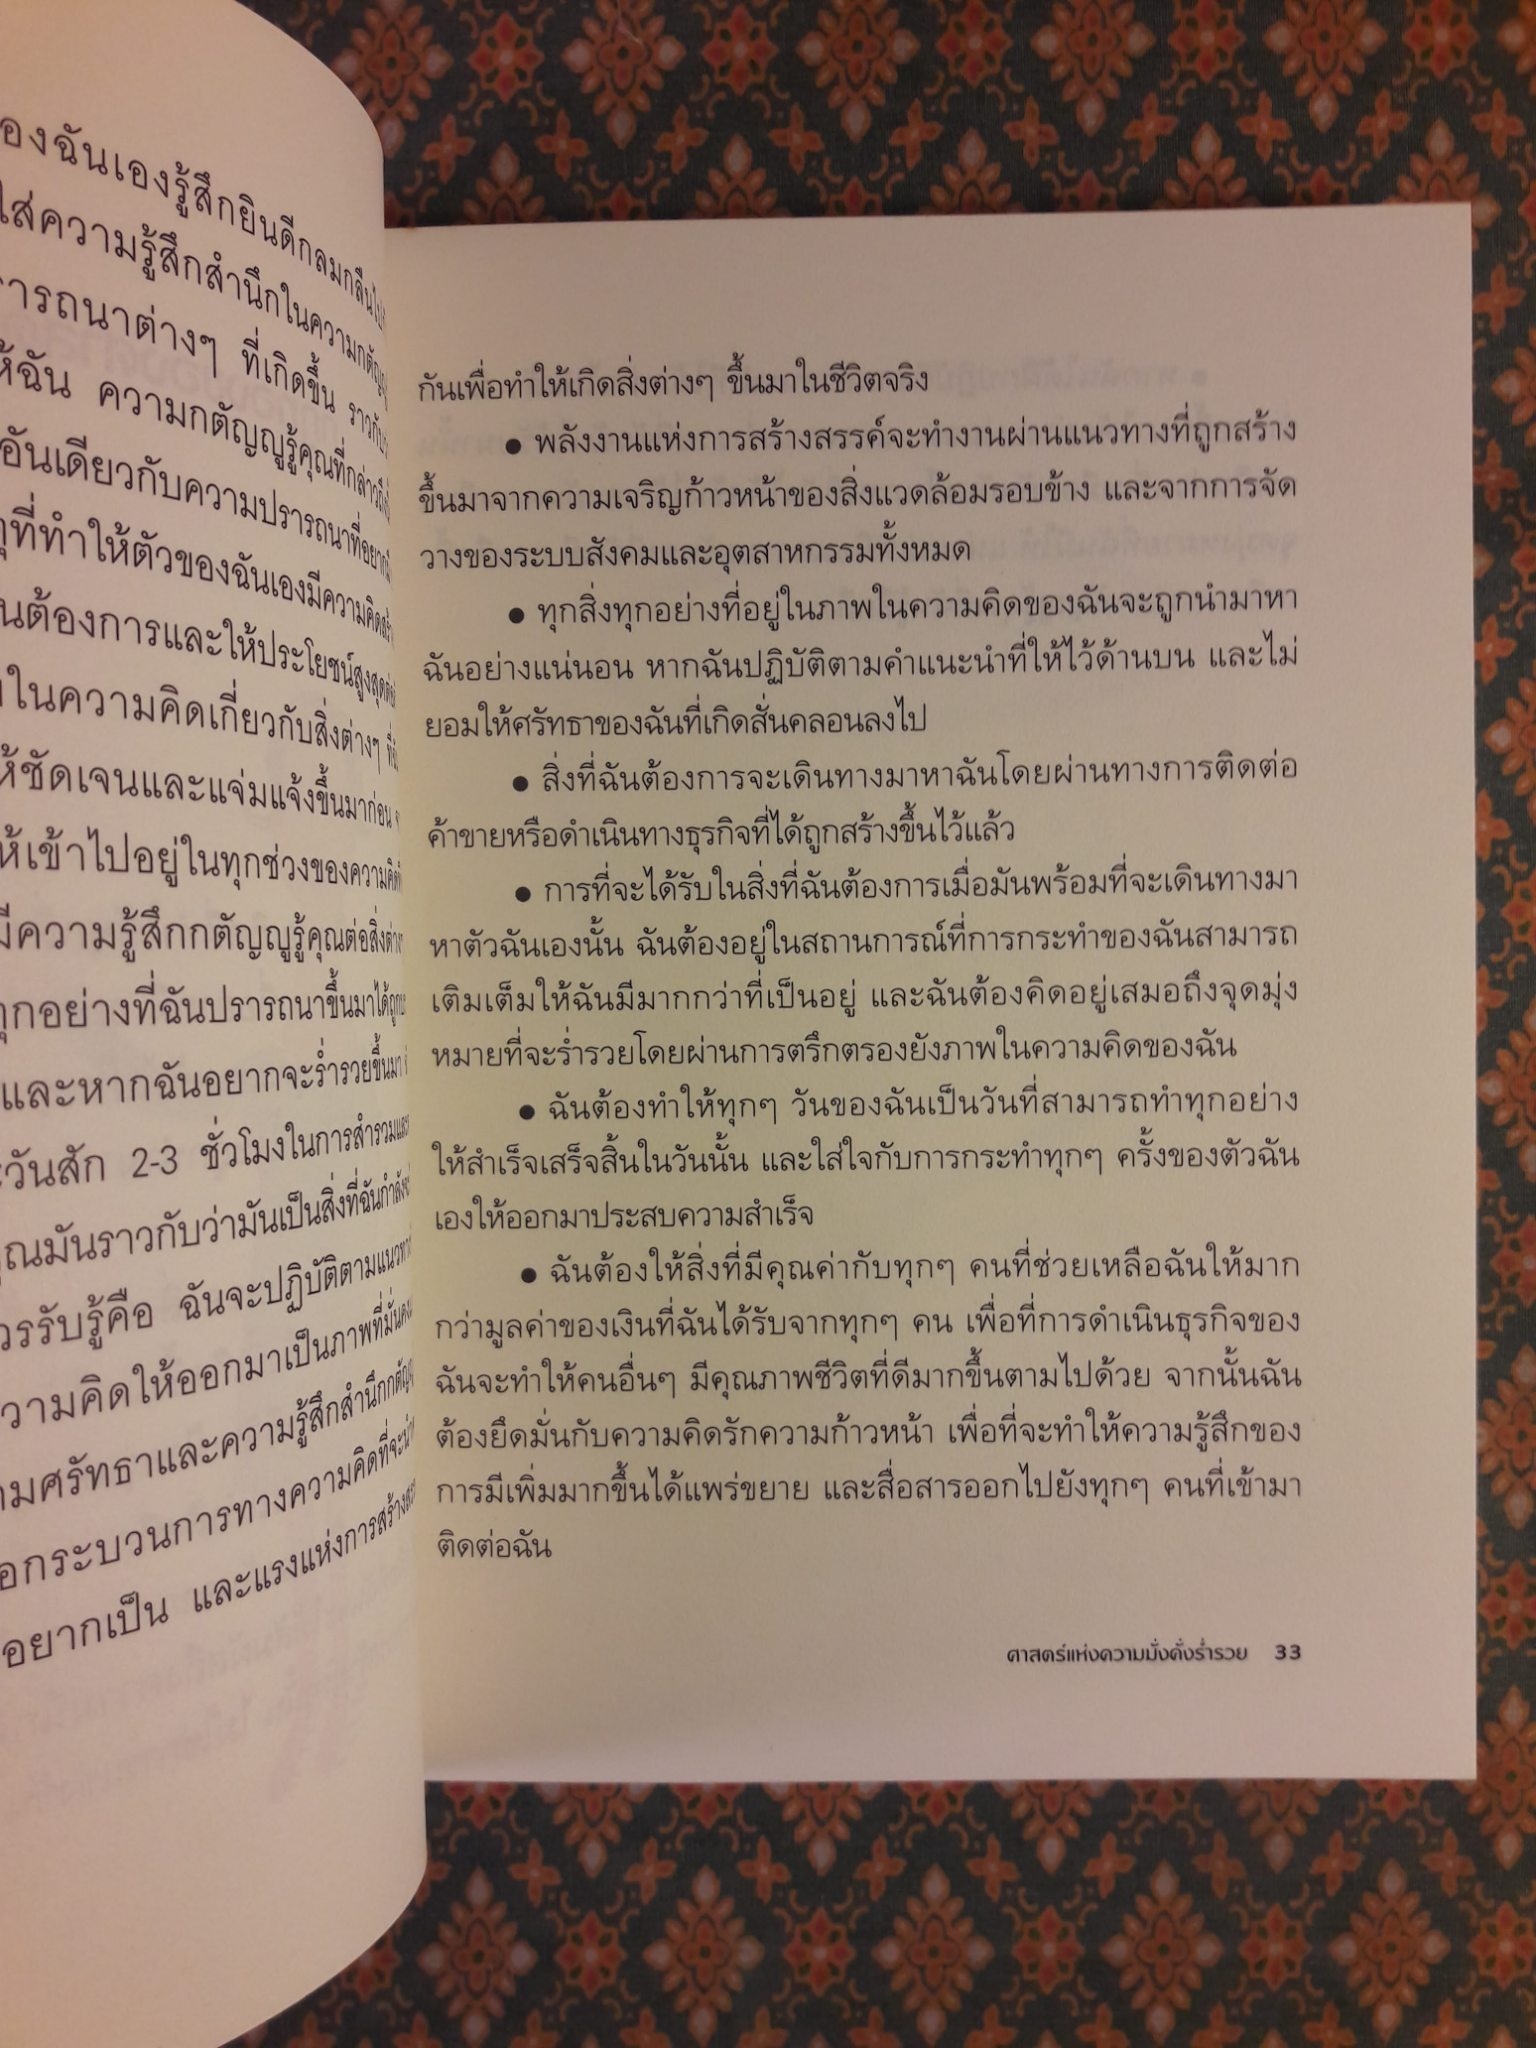 องฉันเองรู้สึกยินดีกลมกลืน
ใส่ความรู้สึกสำนึกในความกตัญญู
ารถนาต่างๆ ที่เกิดขึ้น ราวกับ
ห้ฉัน ความกตัญญูรู้คุณที่กล่าวถึง
อันเดียวกับความปรารถนาที่อยาก
ที่ทำให้ตัวของฉันเองมีความคิด
นต้องการและให้ประโยชน์สูงสุด
ในความคิดเกี่ยวกับสิ่งต่างๆ
ห้ชัดเจนและแจ่มแจ้งขึ้นมาก่อน
ห้เข้าไปอยู่ในทุกช่วงของความคิด
มีความรู้สึกกตัญญูรู้คุณต่อสิ่งต่าง
ทุกอย่างที่ฉันปรารถนาขึ้นมาได้
และหากฉันอยากจะร่ำรวยขึ้นมา
ะวันสัก 2-3 ชั่วโมงในการสำรวม
คุณมันราวกับว่ามันเป็นสิ่งที่ฉันกำลัง
วรรับรู้คือ ฉันจะปฏิบัติตามแนวทาง
วามคิดให้ออกมาเป็นภาพที่มั่นคง
ามศรัทธาและความรู้สึกสำนึกกตัญญู
อกระบวนการทางความคิดที่จะ
อยากเป็น และแรงแห่งการสร้าง
กันเพื่อทำให้เกิดสิ่งต่างๆ ขึ้นมาในชีวิตจริง
● พลังงานแห่งการสร้างสรรค์จะทำงานผ่านแนวทางที่ถูกสร้าง
ขึ้นมาจากความเจริญก้าวหน้าของสิ่งแวดล้อมรอบข้าง และจากการจัด
วางของระบบสังคมและอุตสาหกรรมทั้งหมด
● ทุกสิ่งทุกอย่างที่อยู่ในภาพในความคิดของฉันจะถูกนำมาหา
ฉันอย่างแน่นอน หากฉันปฏิบัติตามคำแนะนำที่ให้ไว้ด้านบน และไม่
ยอมให้ศรัทธาของฉันที่เกิดสั่นคลอนลงไป
● สิ่งที่ฉันต้องการจะเดินทางมาหาฉันโดยผ่านทางการติดต่อ
ค้าขายหรือดำเนินทางธุรกิจที่ได้ถูกสร้างขึ้นไว้แล้ว
● การที่จะได้รับในสิ่งที่ฉันต้องการเมื่อมันพร้อมที่จะเดินทางมา
หาตัวฉันเองนั้น ฉันต้องอยู่ในสถานการณ์ที่การกระทำของฉันสามารถ
เติมเต็มให้ฉันมีมากกว่าที่เป็นอยู่ และฉันต้องคิดอยู่เสมอถึงจุดมุ่ง
หมายที่จะร่ำรวยโดยผ่านการตรึกตรองยังภาพในความคิดของฉัน
● ฉันต้องทำให้ทุกๆ วันของฉันเป็นวันที่สามารถทำทุกอย่าง
ให้สำเร็จเสร็จสิ้นในวันนั้น และใส่ใจกับการกระทำทุกๆ ครั้งของตัวฉัน
เองให้ออกมาประสบความสำเร็จ
● ฉันต้องให้สิ่งที่มีคุณค่ากับทุกๆ คนที่ช่วยเหลือฉันให้มาก
กว่ามูลค่าของเงินที่ฉันได้รับจากทุกๆ คน เพื่อที่การดำเนินธุรกิจของ
ฉันจะทำให้คนอื่นๆ มีคุณภาพชีวิตที่ดีมากขึ้นตามไปด้วย จากนั้นฉัน
ต้องยึดมั่นกับความคิดรักความก้าวหน้า เพื่อที่จะทำให้ความรู้สึกของ
การมีเพิ่มมากขึ้นได้แพร่ขยาย และสื่อสารออกไปยังทุกๆ คนที่เข้ามา
ติดต่อฉัน
ศาสตร์แห่งความมั่งคั่งร่ำรวย 33